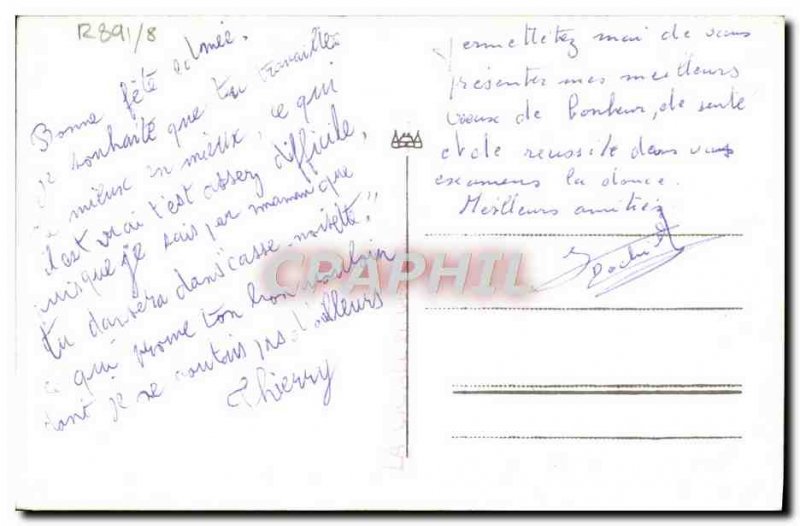 R891/8
Bonne fête
je souhaite que tu travailles
mieux en mieux, ce qui
il est vrai t'est assez difficile,
puisque je sais par maman que
tu dansera dans "casse-noisette",
ce qui prouve ton bon
dont je ne doutais pas d'ailleurs
Thierry
Permettez moi de vous
présenter mes meilleurs
voeux de bonheur, de santé
et de reussite dans vos
examens la dance.
Meilleurs amitiés
CPAPHIL